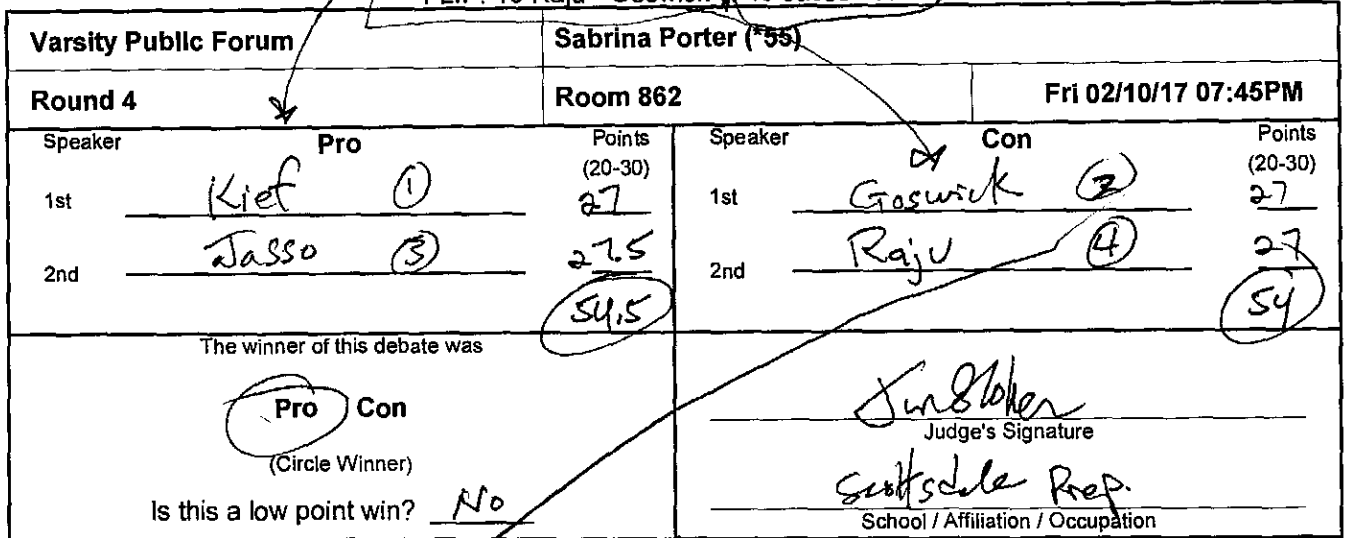 Varsity Public Forum Sabrina Porter (*55)
Round 4 Room 862 Fri 02/10/17 07:45PM
Speaker Pro Points (20-30)
1st Kief ① 27
2nd Jasso ③ 27.5
54.5
Speaker Con Points (20-30)
1st Goswick ② 27
2nd Raju ④ 27
54
The winner of this debate was
Pro Con
(Circle Winner)
Is this a low point win? No
Judge's Signature
Scottsdale Prep.
School / Affiliation / Occupation